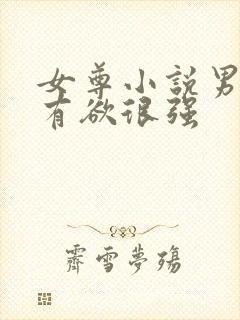 女尊小説男
有欲很强
霽雪夢殤